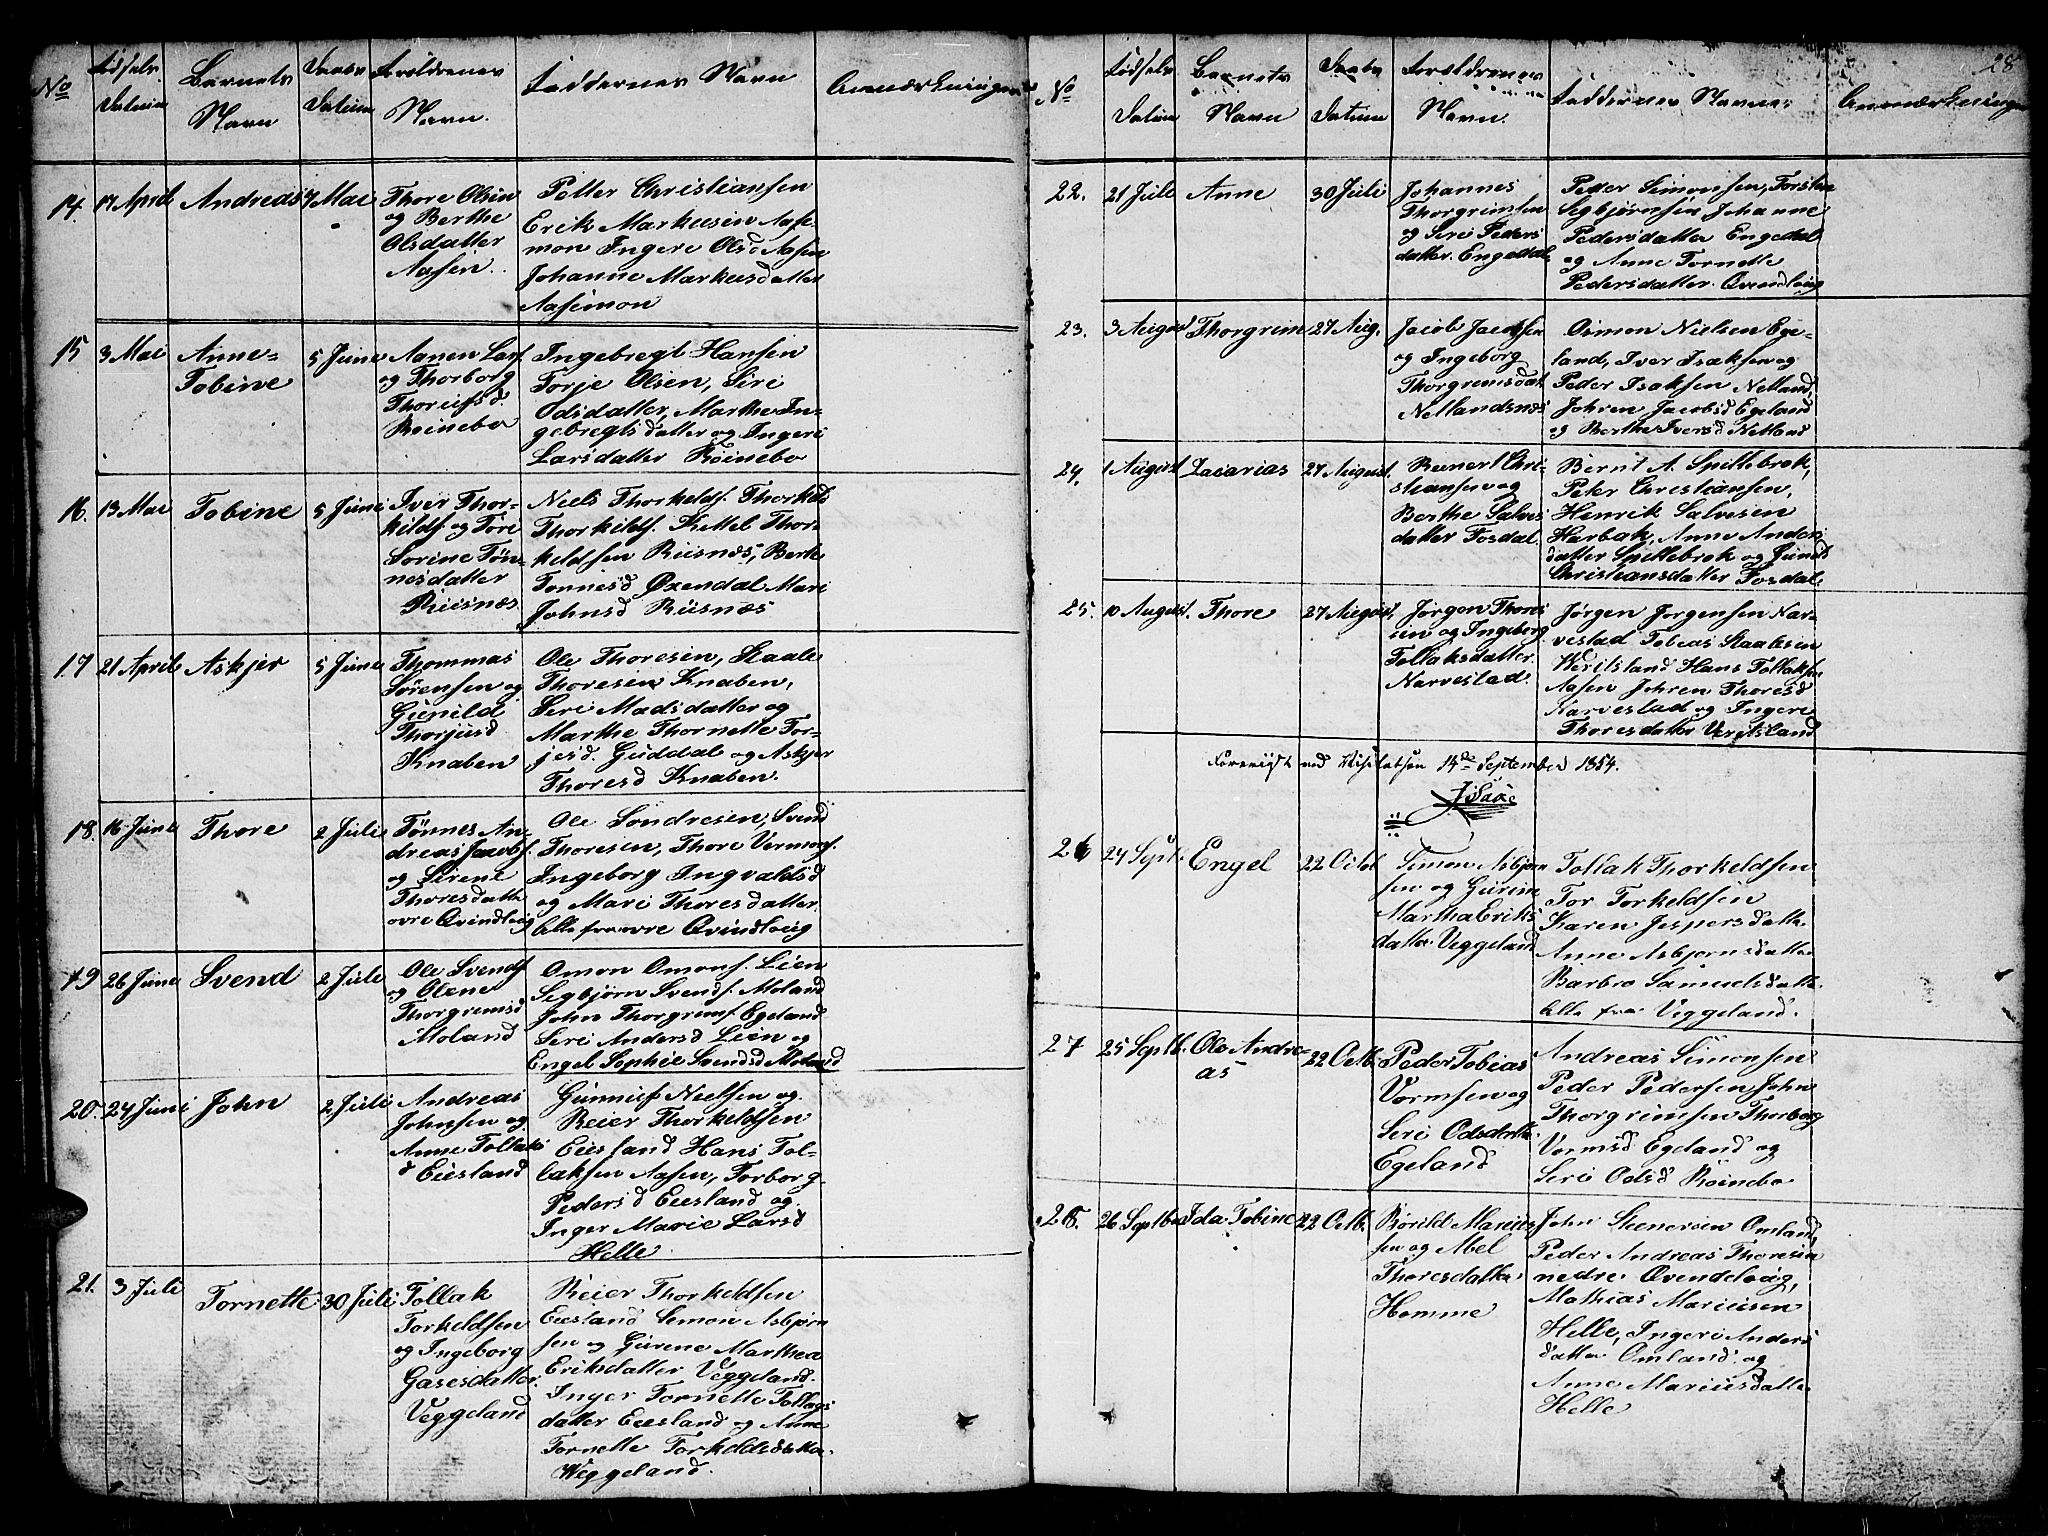 No
Fødsels
Datum
Barnets
Navn
Daabs
Datum
Forældrenes
Navn.
Faddernes Navn
Anmærkninger
14.
17 April
Andreas
7 Mai
Thore Olsen
og Berthe
Olsdatter
Aasen.
Petter Christiansen
Erik Markusen Aase-
mon Ingeri Olsd Aasen
Johanne Markusdatter
Aasemon
15
3 Mai
Anne-
Tobine
5 June
Aanen Lars.
og Thorborg
Thoreifsd.
Roinebo
Ingebregt Hansen
Torje Olsen, Siri
Odsdatter, Marthe In-
gebregtsdatter og Ingeri
Larsdatter Roinebo
16.
13 Mai
Tobine
5 Juni
Iver Thor-
kildsf og Tore
Sorine Tøn-
nesdatter
Risnæs
Niels Thorkeldsf. Thorkeld
Thorkildsf. Kittel Thor-
keldsen Risnæs, Berte
Tonnesd Øxendal Mari
Johnsd Risnæs
17
21 April
Askjer
5 June
Thommas
Sørensen og
Gunild
Thorjusd
Knaben
Ole Thoresen, Staale
Thoresen Knaben,
Seri Madsdatter og
Marthe Thornette Tor-
jesd. Guddal og Askjer
Thoresd Knaben.
18.
16 June
Thore
2 Juli
Tønnes An-
dreas Jacobs.
og Serene
Thoresdatte
ovre Qvindlaug
Ole Sondresen, Svend
Thoresen, Thore Vermorsf.
Ingeborg Ingvaldsd
og Mari Thoresdatter.
Alle fra ovre Qvindlaug
19
26 June
Svend
2 Juli
Ole Svendsf
og Olene
Thorgremsd
Moland
Omon Omonsf. Lien
Segbjørn Svendsf. Moland
John Thorgremsf Egeland
Seri Andersd Lien og
Engel Sophie Svendsd Moland
20.
24 Juni
John
2 Juli
Andreas
Johnsen og
Anne Tollaks
d Eiesland
Gunnuf Nielsen og
Reier Thorkeldsen
Eiesland Hans Tol-
laksen Aasen, Torborg
Pedersd Eiesland og
Inger Marie Larsd
Helle
21.
3 Juli
Tornette
30 Juli
Tollak
Torkeldsen
og Ingeborg
Gasesdatter.
Veggeland
Reier Thorkeldsen
Eiesland Semon Asbjørn
sen og Gurene Marthea
Eriksdatter Veggeland.
Inger Tornette Tollags
datter Eiesland og Anne
Tornette Torkeldsdatter.
Weggeland.
28
No
Fødsels
Datum
Barnets
Navn
Daabs
Datum
Forældrenes
Navn.
Faddernes Navne
Anmærkninger
22.
21 Juli
Anne
30 Juli
Johannes
Thorgrimsen
og Seri Peders
datter Engedal
Peder Simonsen, Torsten
Segbjørnsen Johanne
Pedersdatter Engedal
og Anne Tornette
Pedersdatter Qvindlaug
23.
3 August
Thorgrim
27 Aug.
Jacob Jacobsen
og Ingeborg
Thorgremsdat.
Netlandsnæs
Osmon Nielsen Ege-
land, Iver Isaksen og
Peder Isaksen Netland,
Johren Jacobsd Egeland
og Berthe Iversd Netland
24.
1 August
Zacarias
27 August.
Reinert Chri-
stiansen og
Berthe Salves
datter Fosdal.
Bernt A. Spillebrok,
Peter Christiansen,
Henrik Salvesen
Harbak, Anne Anders
datter Spillebrok og Juned
Christiansdatter Fosdal.
25.
10 August.
Thore
27 August.
Jørgen Thores
sen og Ingeborg
Tollaksdatter.
Narvestad.
Jørgen Jorgensen Nar-
vestad Tobias Staalesen
Weritsland Hans Tollaksen
Aasen Johren Thoresd
Narvestad og Ingeri
Thoresdatter Veritsland
Foreviist ved Visitatsen 14de September 1854.
26
24 Sept.
Engel
22 Octob
Simon Asbjørn
sen og Gurine
Martha Eriks
datter Veggeland
Tollak Thorkeldsen
Tor Torkeldsen
Karen Jespersdatte
Anne Asbjørnsdatter
Barbro Samuelsdatte.
Alle fra Veggeland.
27
25 Septb.
Ole Andre-
as
22 Octb.
Peder Tobias
Vormsen og
Seri Odsdatte.
Egeland
Andreas Simonsen
Peder Pedersen John
Thorgrimsen Thorborg
Vormsd Egeland og
Seri Odsd Roinebo
28.
26 Septbr
Ida Tobine
22 Octb.
Boreld Marius
sen og Abel
Thoresdatter
Homme
John Stenersen Omland,
Peder Andreas Thoresen
nedre Qvindelaug,
Mathias Mariusen
Helle, Ingeri Anders
datter Omland og
Anne Mariusdatte
Helle